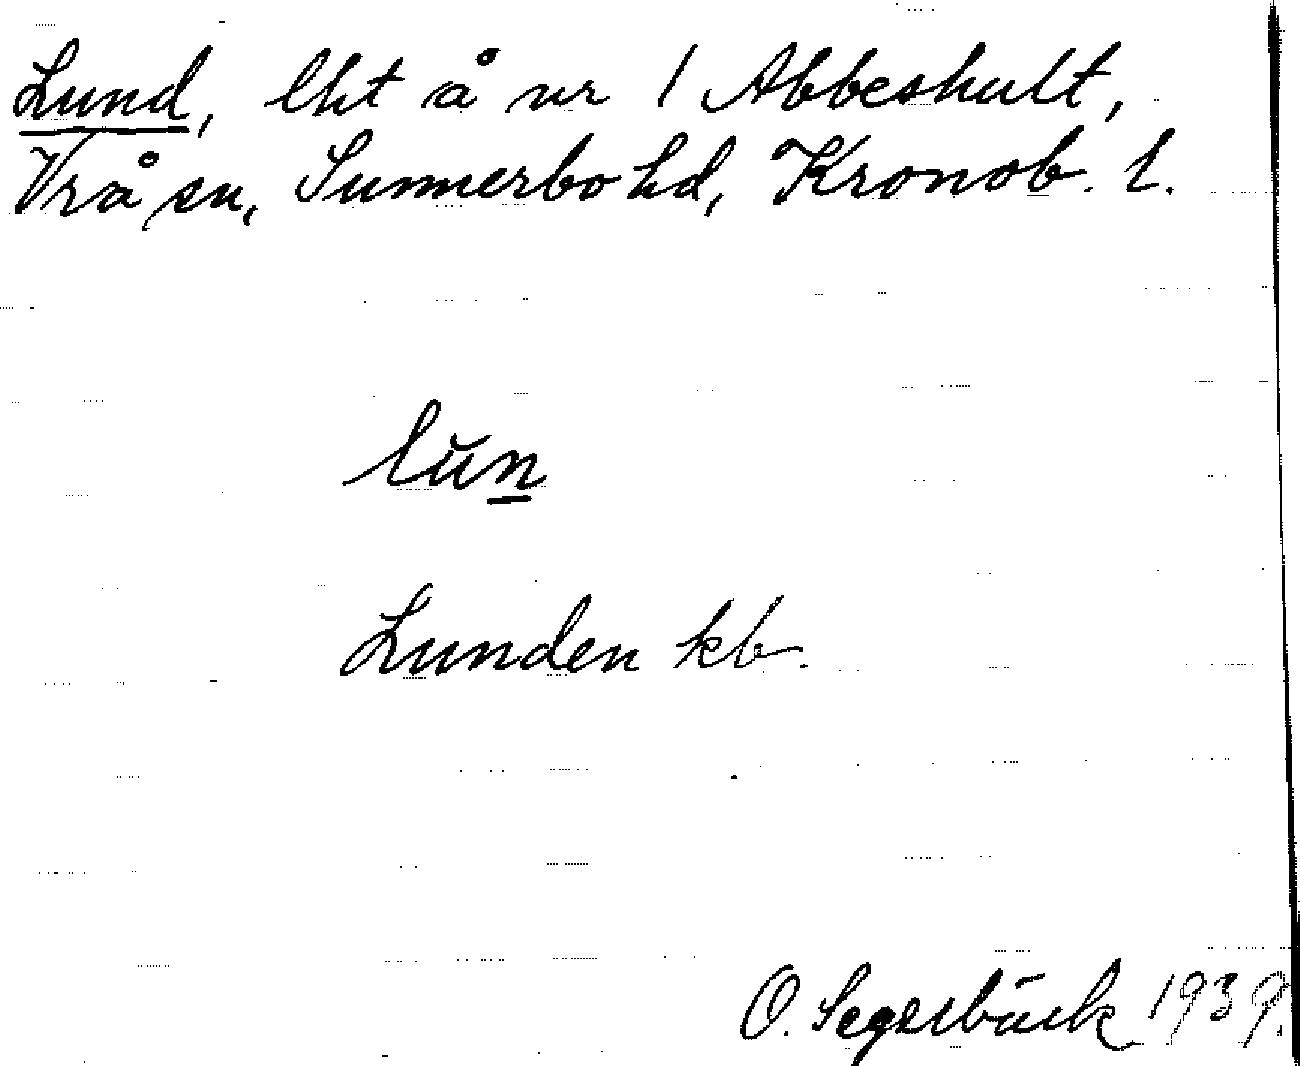 Lund, lht å nr 1 Abbeshult,
Vrå sn, Sunnerbo hd, Kronob. l.
lŭn
Lunden kb.
O. Segerbäck 1939.